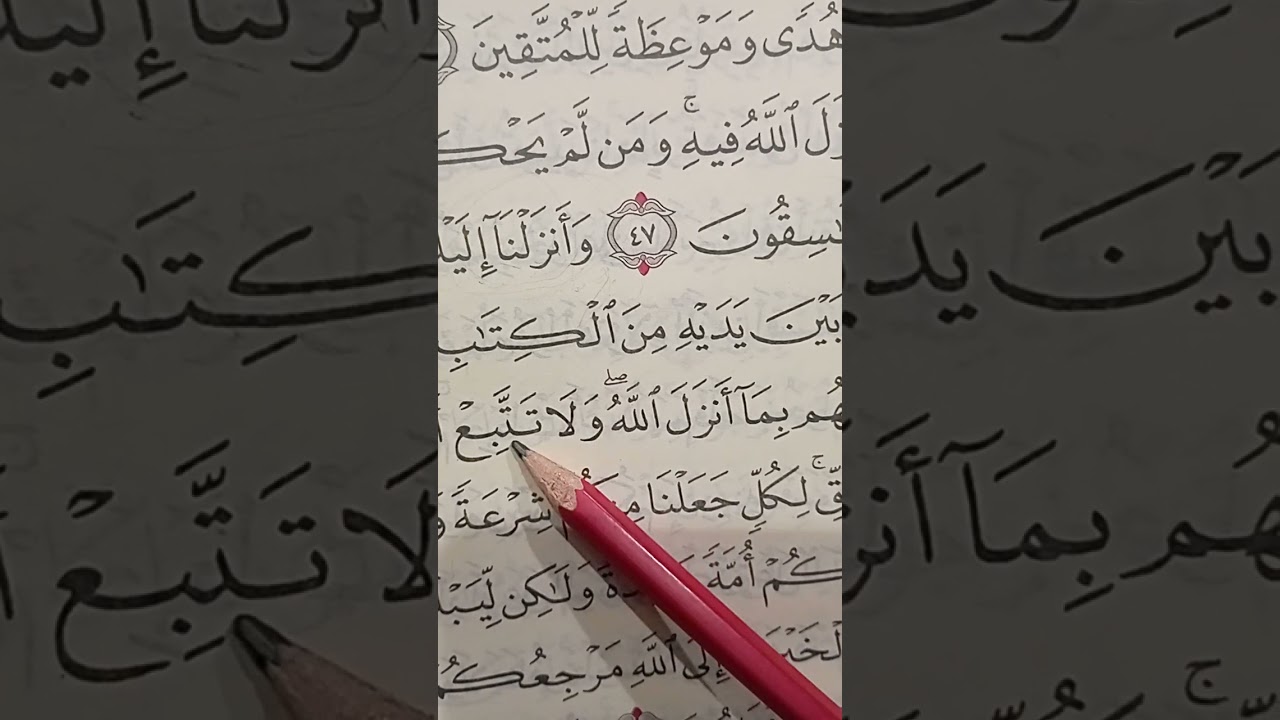 هُدًى وَمَوْعِظَةً لِّلْمُتَّقِينَ
ٱللَّهُ فِيهِ ۚ وَمَن لَّمْ يَحْكُ
ٰسِقُونَ ٤٧ وَأَنزَلْنَآ إِلَيْ
بَيْنَ يَدَيْهِ مِنَ ٱلْكِتَٰبِ
هُم بِمَآ أَنزَلَ ٱللَّهُ ۖ وَلَا تَتَّبِعْ
قِّ ۚ لِكُلٍّ جَعَلْنَا شِرْعَةً وَ
كُمْ أُمَّةً وَلَٰكِن لِّيَبْ
إِلَى ٱللَّهِ مَرْجِعُكُمْ